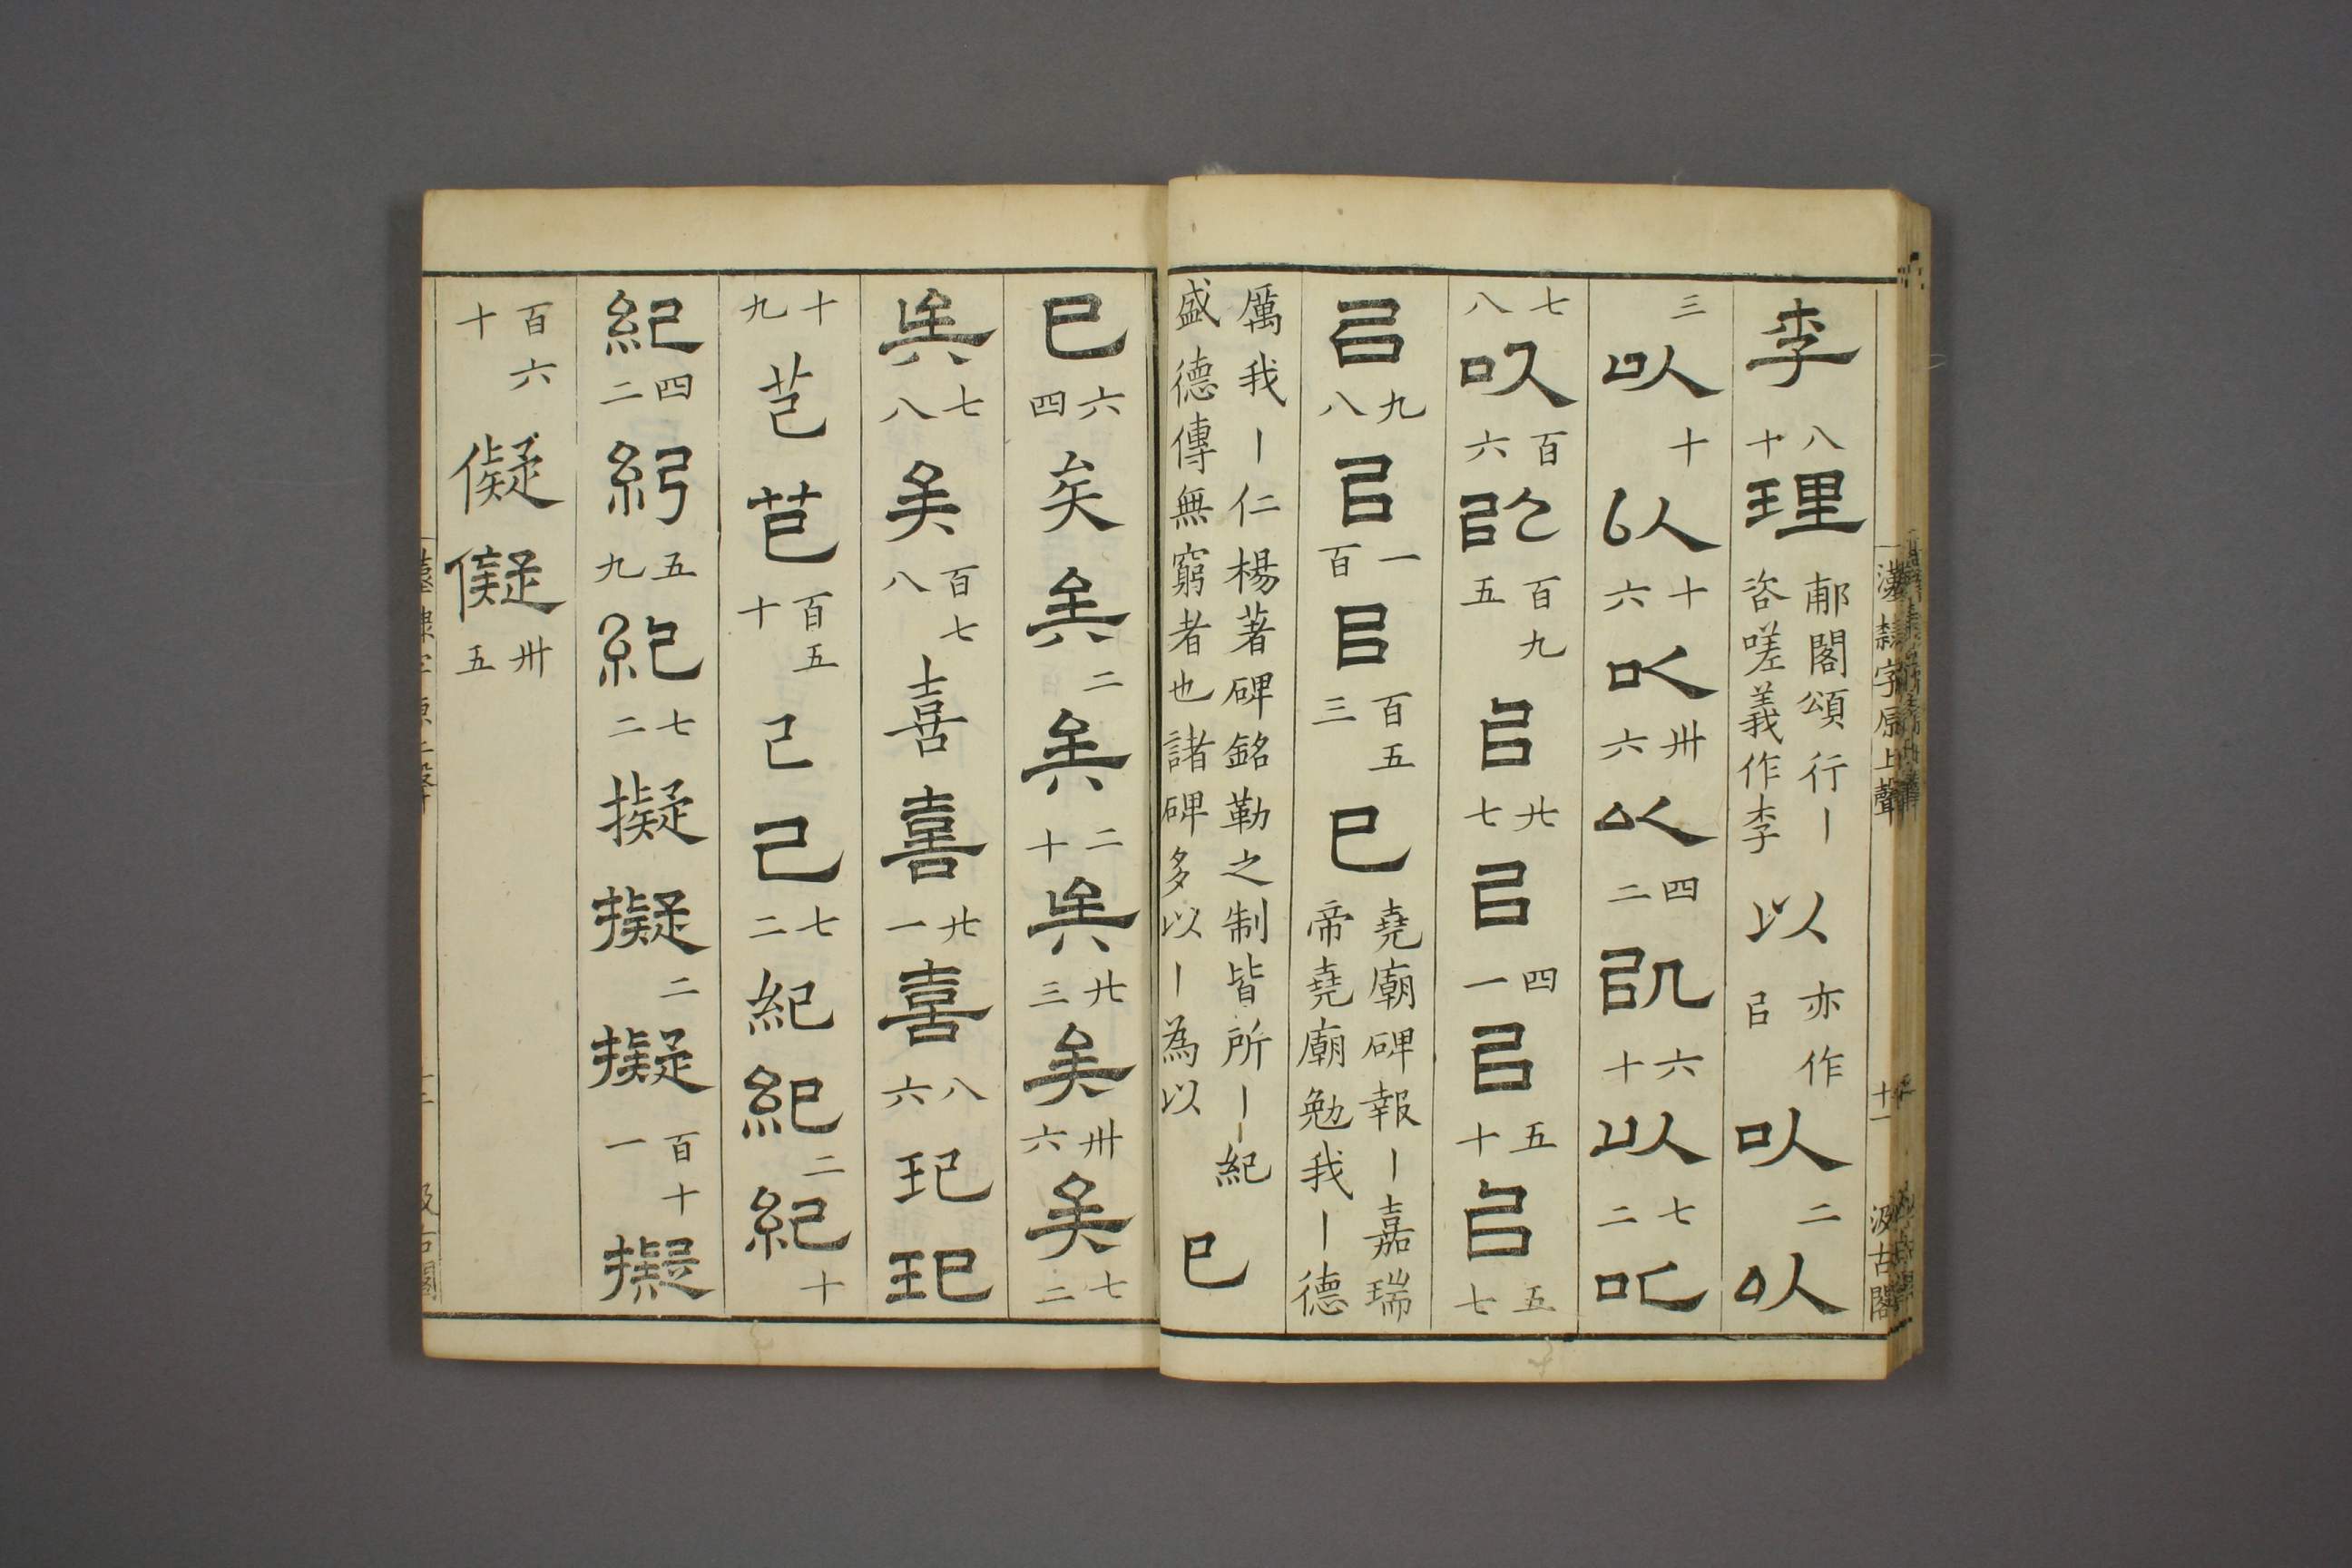 漢隸字原上聲 十一 汲古閣
李 八十 理 郙閣頌行丨咨嗟義作李 以 亦作㠯 以 二 以
三 以 十 以 十六 以 卅六 以 四二 以 六十 以 七二 以
七八 以 百六 以 百九五 㠯 廿七 㠯 四一 㠯 五十 㠯 五七
㠯 九八 㠯 一百 㠯 百五三 巳 堯廟碑報丨嘉瑞帝堯廟勉我丨德
厲我丨仁楊著碑銘勒之制皆所丨紀盛德傳無窮者也諸碑多以丨為以 巳
巳 六四 矣 矣 二 矣 二十 矣 廿三 矣 卅六 矣 七二
矣 七八 矣 百七八 喜 喜 廿一 喜 八六 玘 玘
十九 芑 芑 百五十 己 己 七二 紀 紀 二 紀 十
紀 四二 紀 五九 紀 七二 擬 擬 二 擬 百十一 擬
百六十 儗 儗 卅五